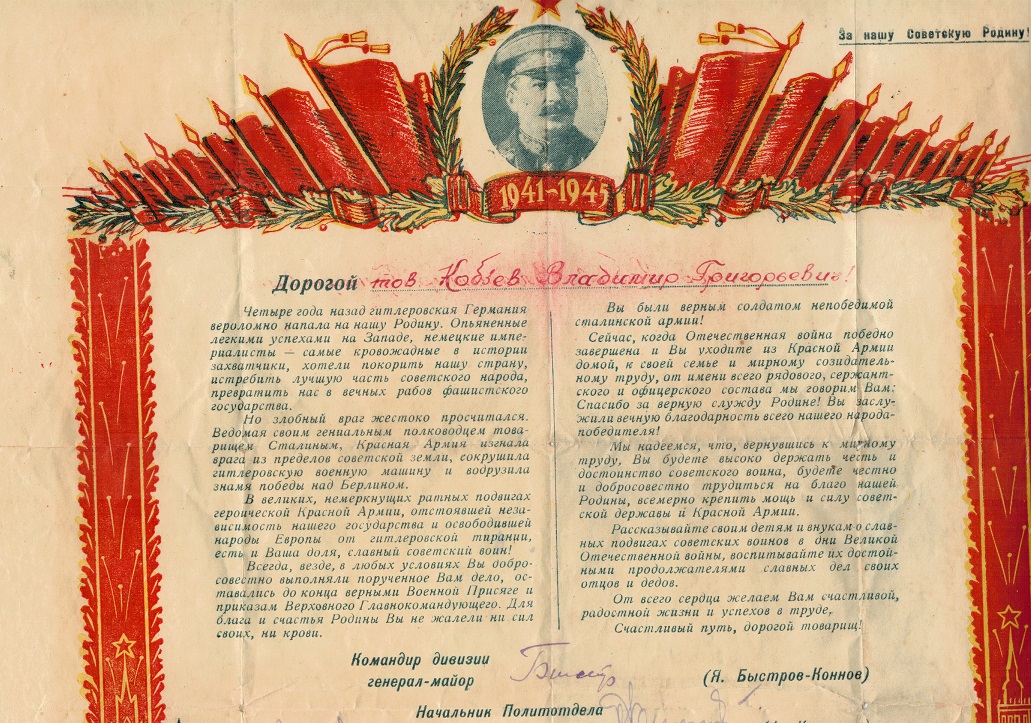 За нашу Советскую Родину!
1941-1945
Дорогой тов Кобзев Владимир Григорьевич!
Четыре года назад гитлеровская Германия
вероломно напала на нашу Родину. Опьяненные
легкими успехами на Западе, немецкие импе-
риалисты — самые кровожадные в истории
захватчики, хотели покорить нашу страну,
истребить лучшую часть советского народа,
превратить нас в вечных рабов фашистского
государства.
Но злобный враг жестоко просчитался.
Ведомая своим гениальным полководцем това-
рищем Сталиным, Красная Армия изгнала
врага из пределов советской земли, сокрушила
гитлеровскую военную машину и водрузила
знамя победы над Берлином.
В великих, немеркнущих ратных подвигах
героической Красной Армии, отстоявшей неза-
висимость нашего государства и освободившей
народы Европы от гитлеровской тирании,
есть и Ваша доля, славный советский воин!
Всегда, везде, в любых условиях Вы добро-
совестно выполняли порученное Вам дело, ос-
тавались до конца верными Военной Присяге и
приказам Верховного Главнокомандующего. Для
блага и счастья Родины Вы не жалели ни сил
своих, ни крови.
Вы были верным солдатом непобедимой
сталинской армии!
Сейчас, когда Отечественная война победно
завершена и Вы уходите из Красной Армии
домой, к своей семье и мирному созидатель-
ному труду, от имени всего рядового, сержант-
ского и офицерского состава мы говорим Вам:
Спасибо за верную службу Родине! Вы заслу-
жили вечную благодарность всего нашего народа-
победителя!
Мы надеемся, что, вернувшись к мирному
труду, Вы будете высоко держать честь и
достоинство советского воина, будете честно
и добросовестно трудиться на благо нашей
Родины, всемерно крепить мощь и силу совет-
ской державы и Красной Армии.
Рассказывайте своим детям и внукам о слав-
ных подвигах советских воинов в дни Великой
Отечественной войны, воспитывайте их достой-
ными продолжателями славных дел своих
отцов и дедов.
От всего сердца желаем Вам счастливой,
радостной жизни и успехов в труде.
Счастливый путь, дорогой товарищ!
Командир дивизии
генерал-майор
(Я. Быстров-Коннов)
Начальник Политотдела